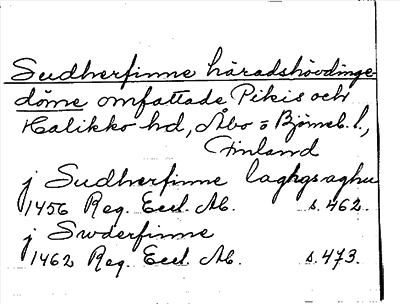 Sudherfinne häradshövdinge-
döme omfattade Pikis och
Halikko hd, Åbo o Björneb. l.,
Finland
j Sudherfinne laghgsaghu
1456 Reg. Eccl. Ab. s. 462.
j Swderfinne
1462 Reg. Eccl. Ab. s. 473.